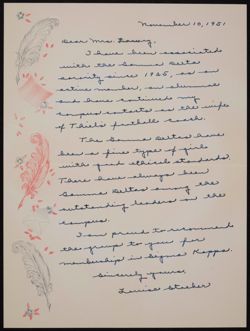 November 10, 1951
Dear Mrs.
I have been associated
with the Gamma Delta
sorority since 1925, as an
active member, an alumnae
and have continued my
campus contacts as the wife
of Thiel's football coach.
The Gamma Deltas have
been a fine type of girls
with good ethical standards.
There have always been
Gamma Deltas among the
outstanding leaders on the
campus.
I am proud to recommend
the group to you for
membership in Sigma Kappa.
Sincerely yours,
Louise Stoeber